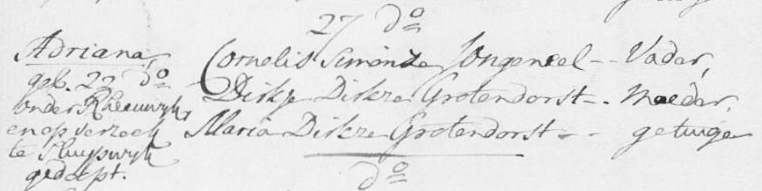 27 do
Adriana,
geb. 22 do
onder Rheeuwyk,
en op verzoek
te Sluypwyk
gedoopt.
Cornelis Simonze Jongeneel -- Vader,
Dirkje Dirkze Grotendorst -- Moeder,
Maria Dirkze Grotendorst -- getuige
do